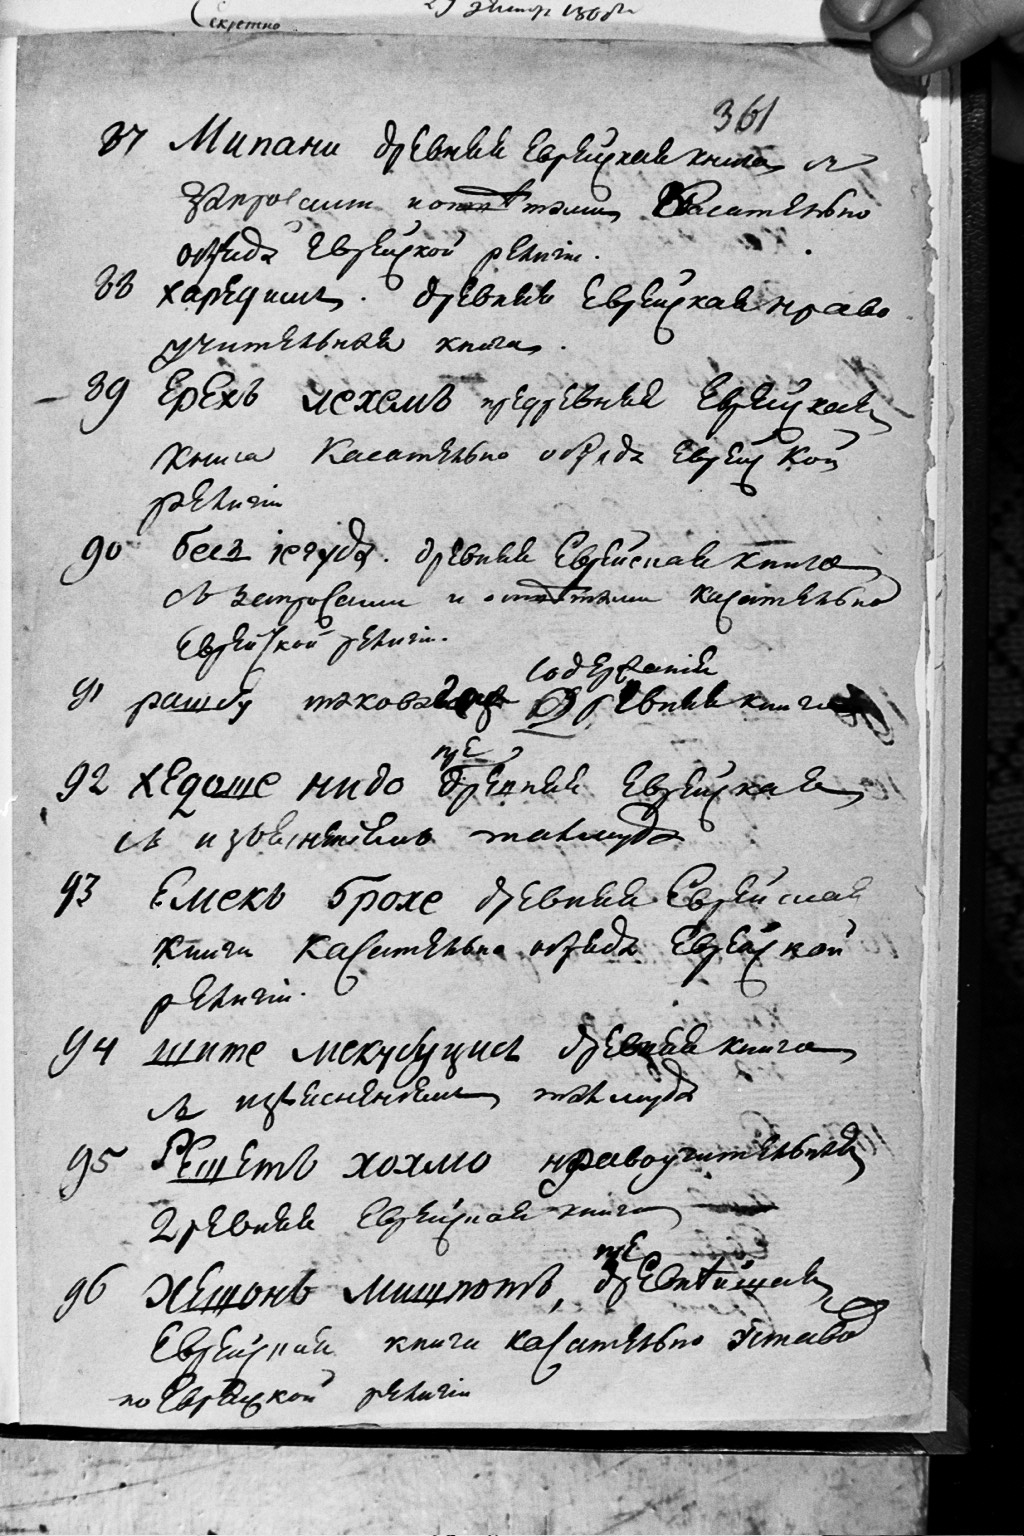 Секретно
361
87 Мипани древния Еврейская книга съ
запросами и ответами Касательно
обряда Еврейской религіи.
88 харедимъ. древняя Еврейская нраво
учительная книга.
89 Ерехъ лехемъ предревняя Еврейская
книга Касательно обряда Еврейской
религіи
90 беез іегуда. древняя Еврейская книга
съ запросами и ответами касательно
Еврейской религіи.
91 рашбу таковаго
содержанія
Древняя книга
92 хедоше нидо
пре
древняя Еврейская
съ изъясненіемъ талмуда
93 Емекъ брохе древняя Еврейская
книга Касательно обряда Еврейской
религіи.
94 шите мекубуцисъ древняя книга
съ изъясненіемъ талмуда
95 Решетъ хохмо нравоучительная
древняя Еврейская книга
96 Хешонъ мишпотъ,
пре
древнѣйшая
Еврейская книга касательно устава
по Еврейской религіи